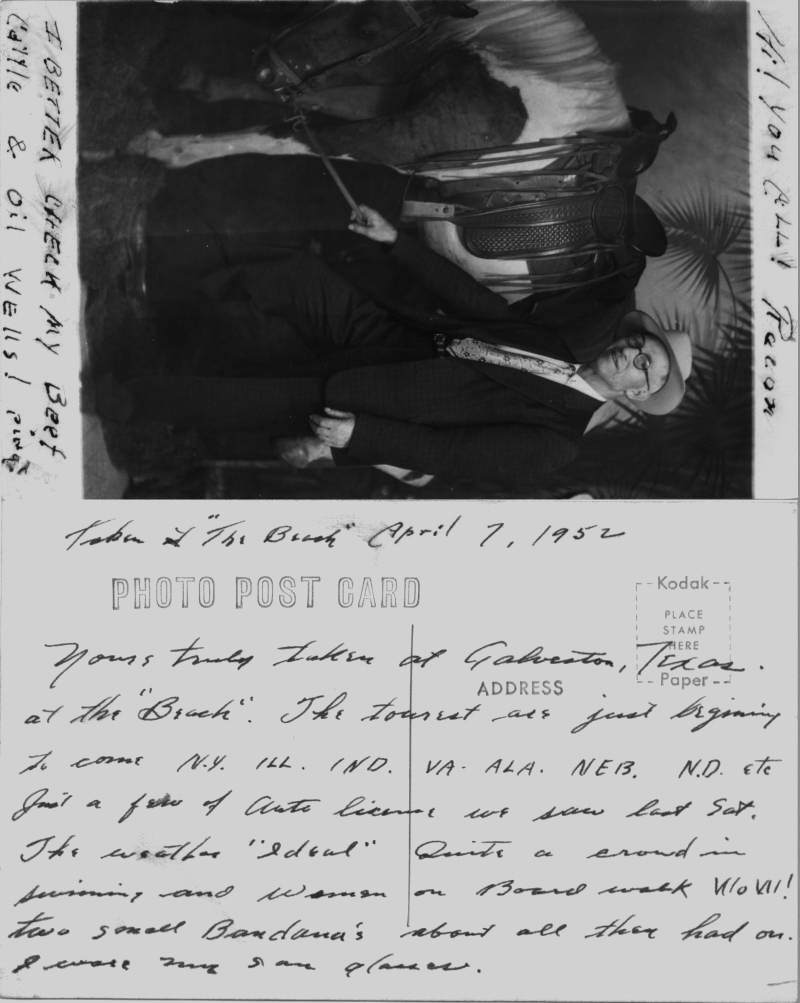 Hi! you all! Tex
I BETTER CHECK MY Beef
Cattle & Oil Wells!
Taken at "The Beach" April 7, 1952
PHOTO POST CARD
Kodak
PLACE
STAMP
HERE
Paper
ADDRESS
Yours truly taken at Galveston, Texas.
at the "Beach". The tourest are just begining
to come N.Y. ILL. IND. VA- ALA. NEB. N.D. etc
Just a few of Auto license we saw last Sat.
The weather "Ideal" Quite a crowd in
swimming and women on Board walk WoW!!
two small Bandana's about all they had on.
I wore my sun glasses.